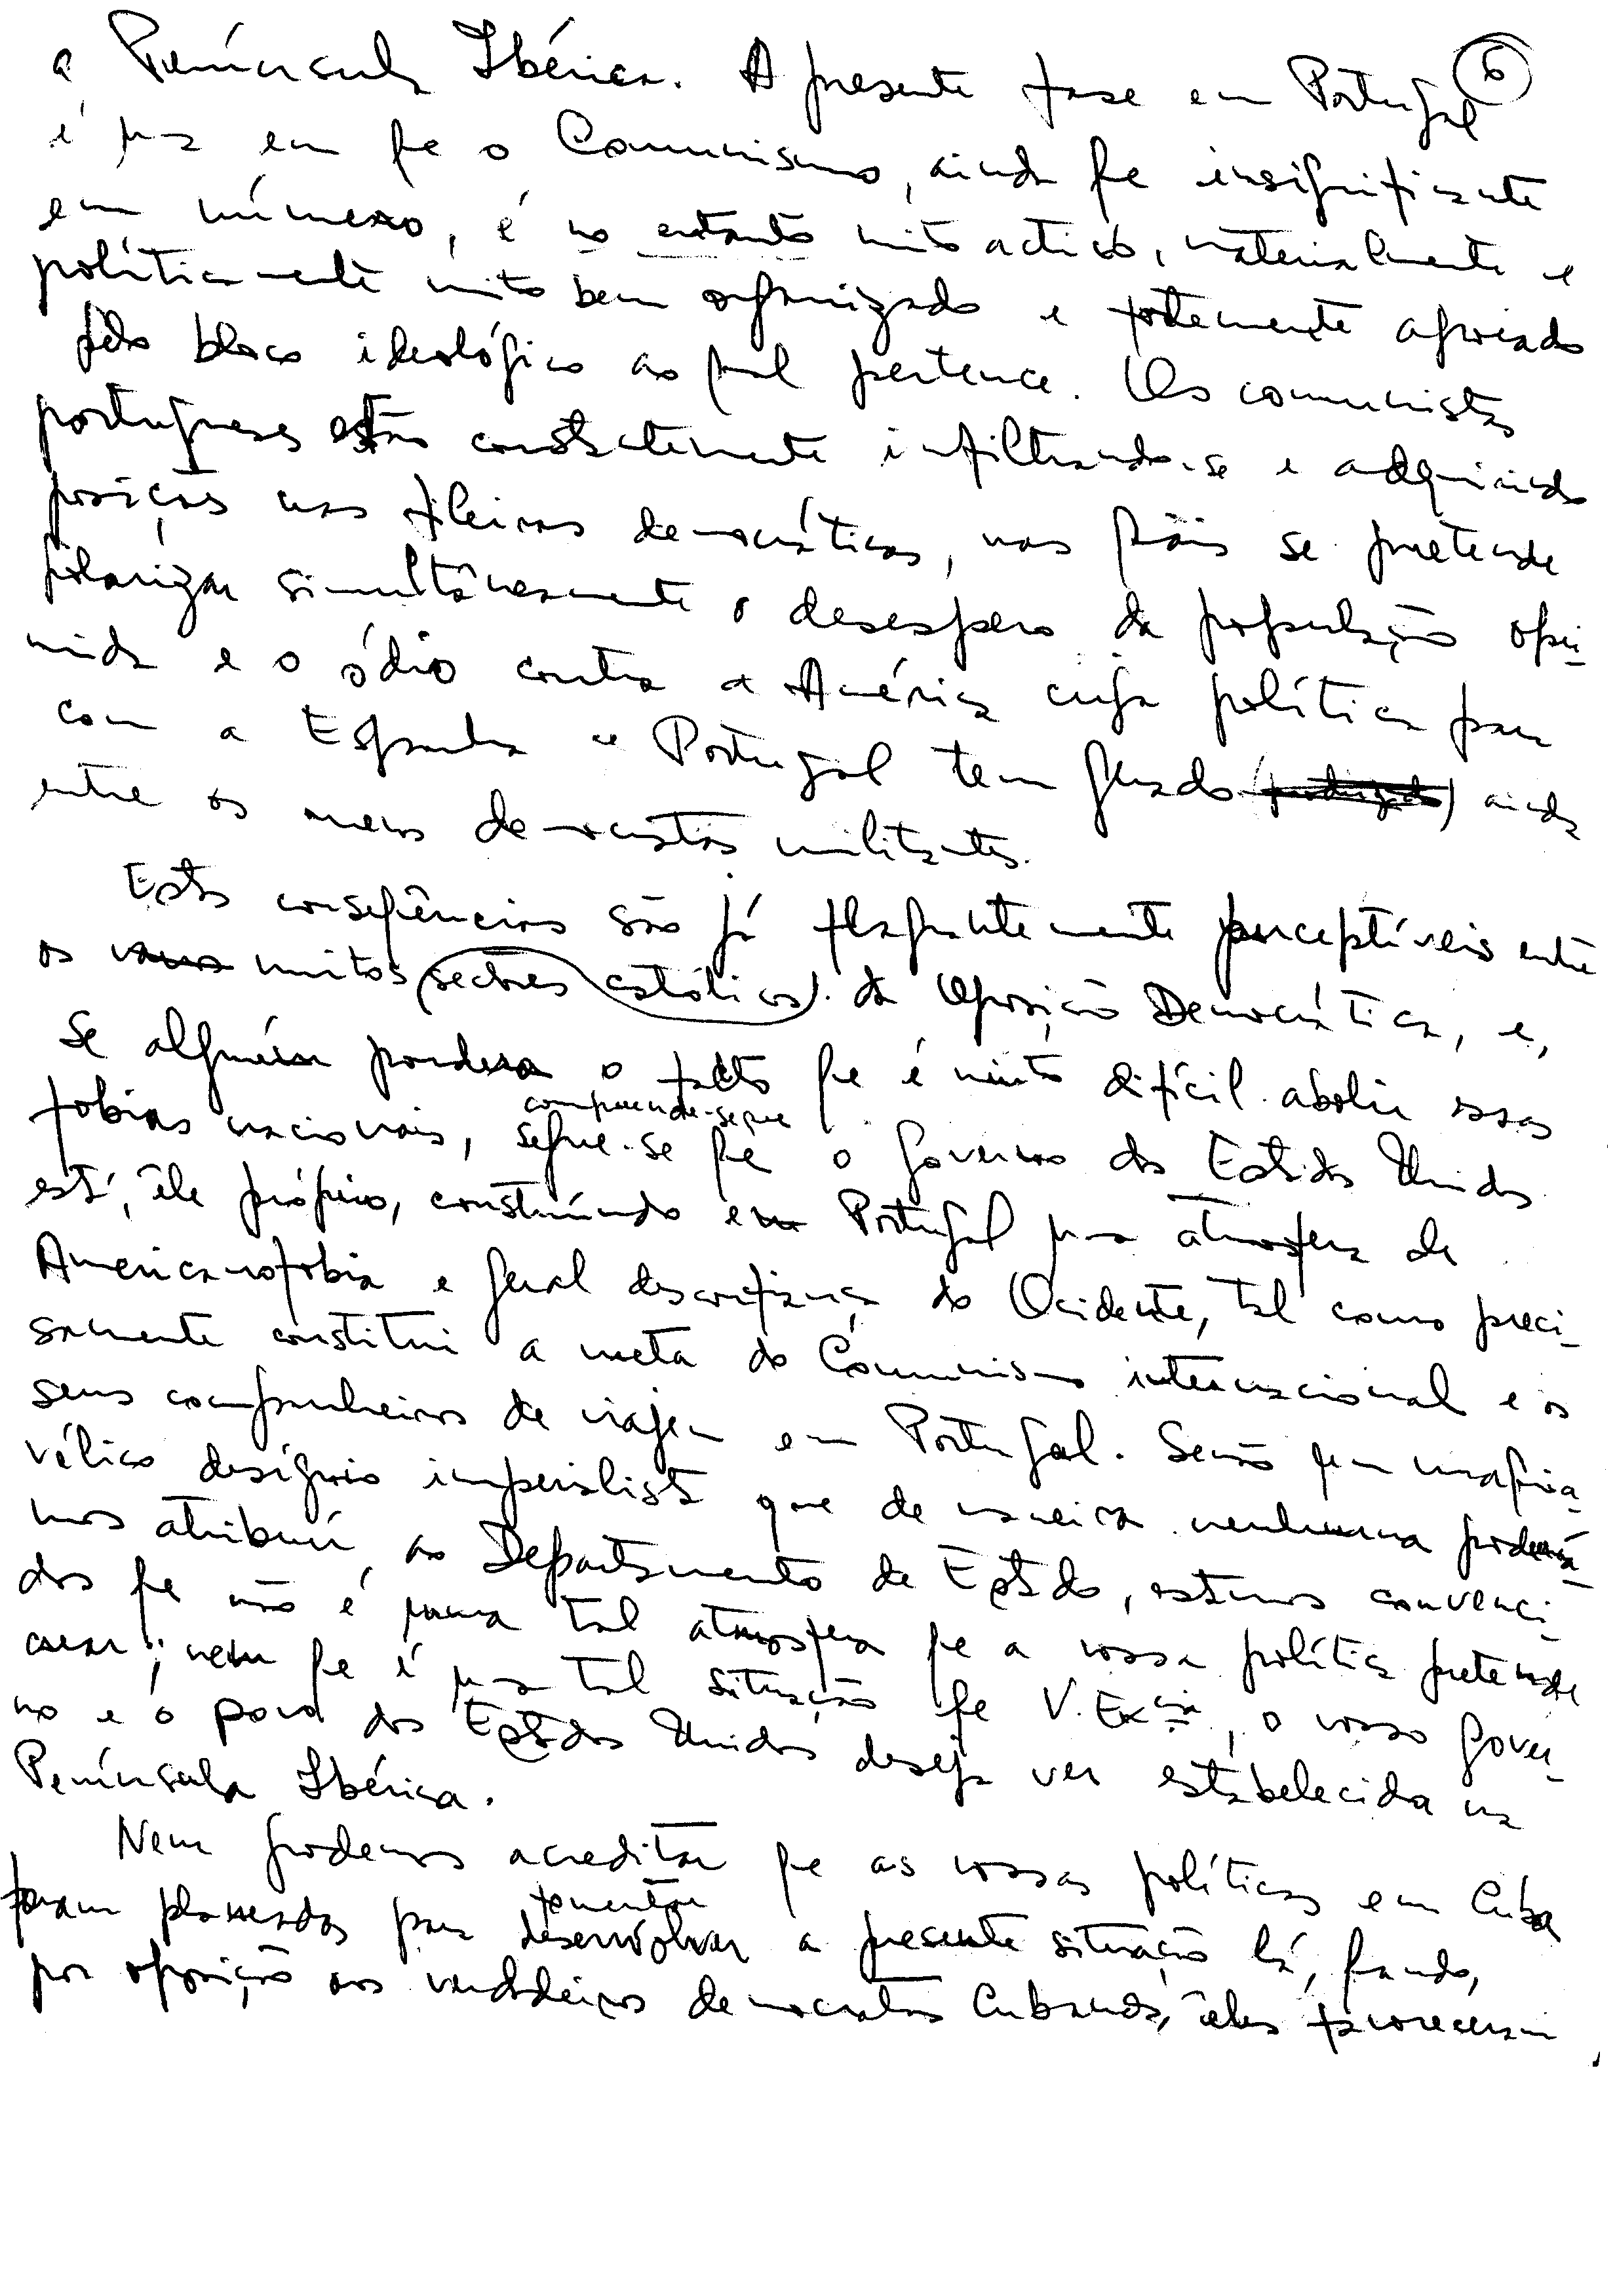 a Península Ibérica. A presente fase em Portugal 6
é uma em que o Comunismo, ainda que insignificante
em número, é no entanto muito activo, materialmente e
politicamente muito bem organizado e fortemente apoiado
pelo bloco ideológico ao qual pertence. Os comunistas
portugueses estão constantemente infiltrando-se e adquirindo
posições nas fileiras democráticas, nas quais se pretende
polarizar simultâneamente o desespero da população opri-
mida e o ódio contra a América cuja política para
com a Espanha e Portugal tem gerado ( ) ainda
entre os meros democratas militantes.
Estas conseqüências são já flagrantemente perceptíveis entre
os muitos (sectores católicos) da Oposição Democrática, e,
se alguém pondera o facto que é muito difícil abolir essas
compreende-se que
fobias nacionais, segue-se que o Governo dos Estados Unidos
está, êle próprio, construíndo em Portugal uma atmosfera de
Americanofobia e geral desconfiança do Ocidente, tal como preci-
samente constitui a meta do Comunismo internacional e os
seus companheiros de viagem em Portugal. Senão por maquia-
vélico desígnio imperialista que de maneira nenhuma podería-
mos atribuir ao Departamento de Estado, estamos convenci-
dos que não é numa tal atmosfera que a vossa política pretende
criar; nem que é uma tal situação que V. Excia, o vosso gover-
no e o povo dos Estados Unidos deseja ver estabelecida na
Península Ibérica.
Nem podemos acreditar que as vossas políticas em Cuba
fomentar
foram planeadas para desenvolver a presente situação lá, quando,
por oposição aos verdadeiros democratas Cubanos, êles favoreceram